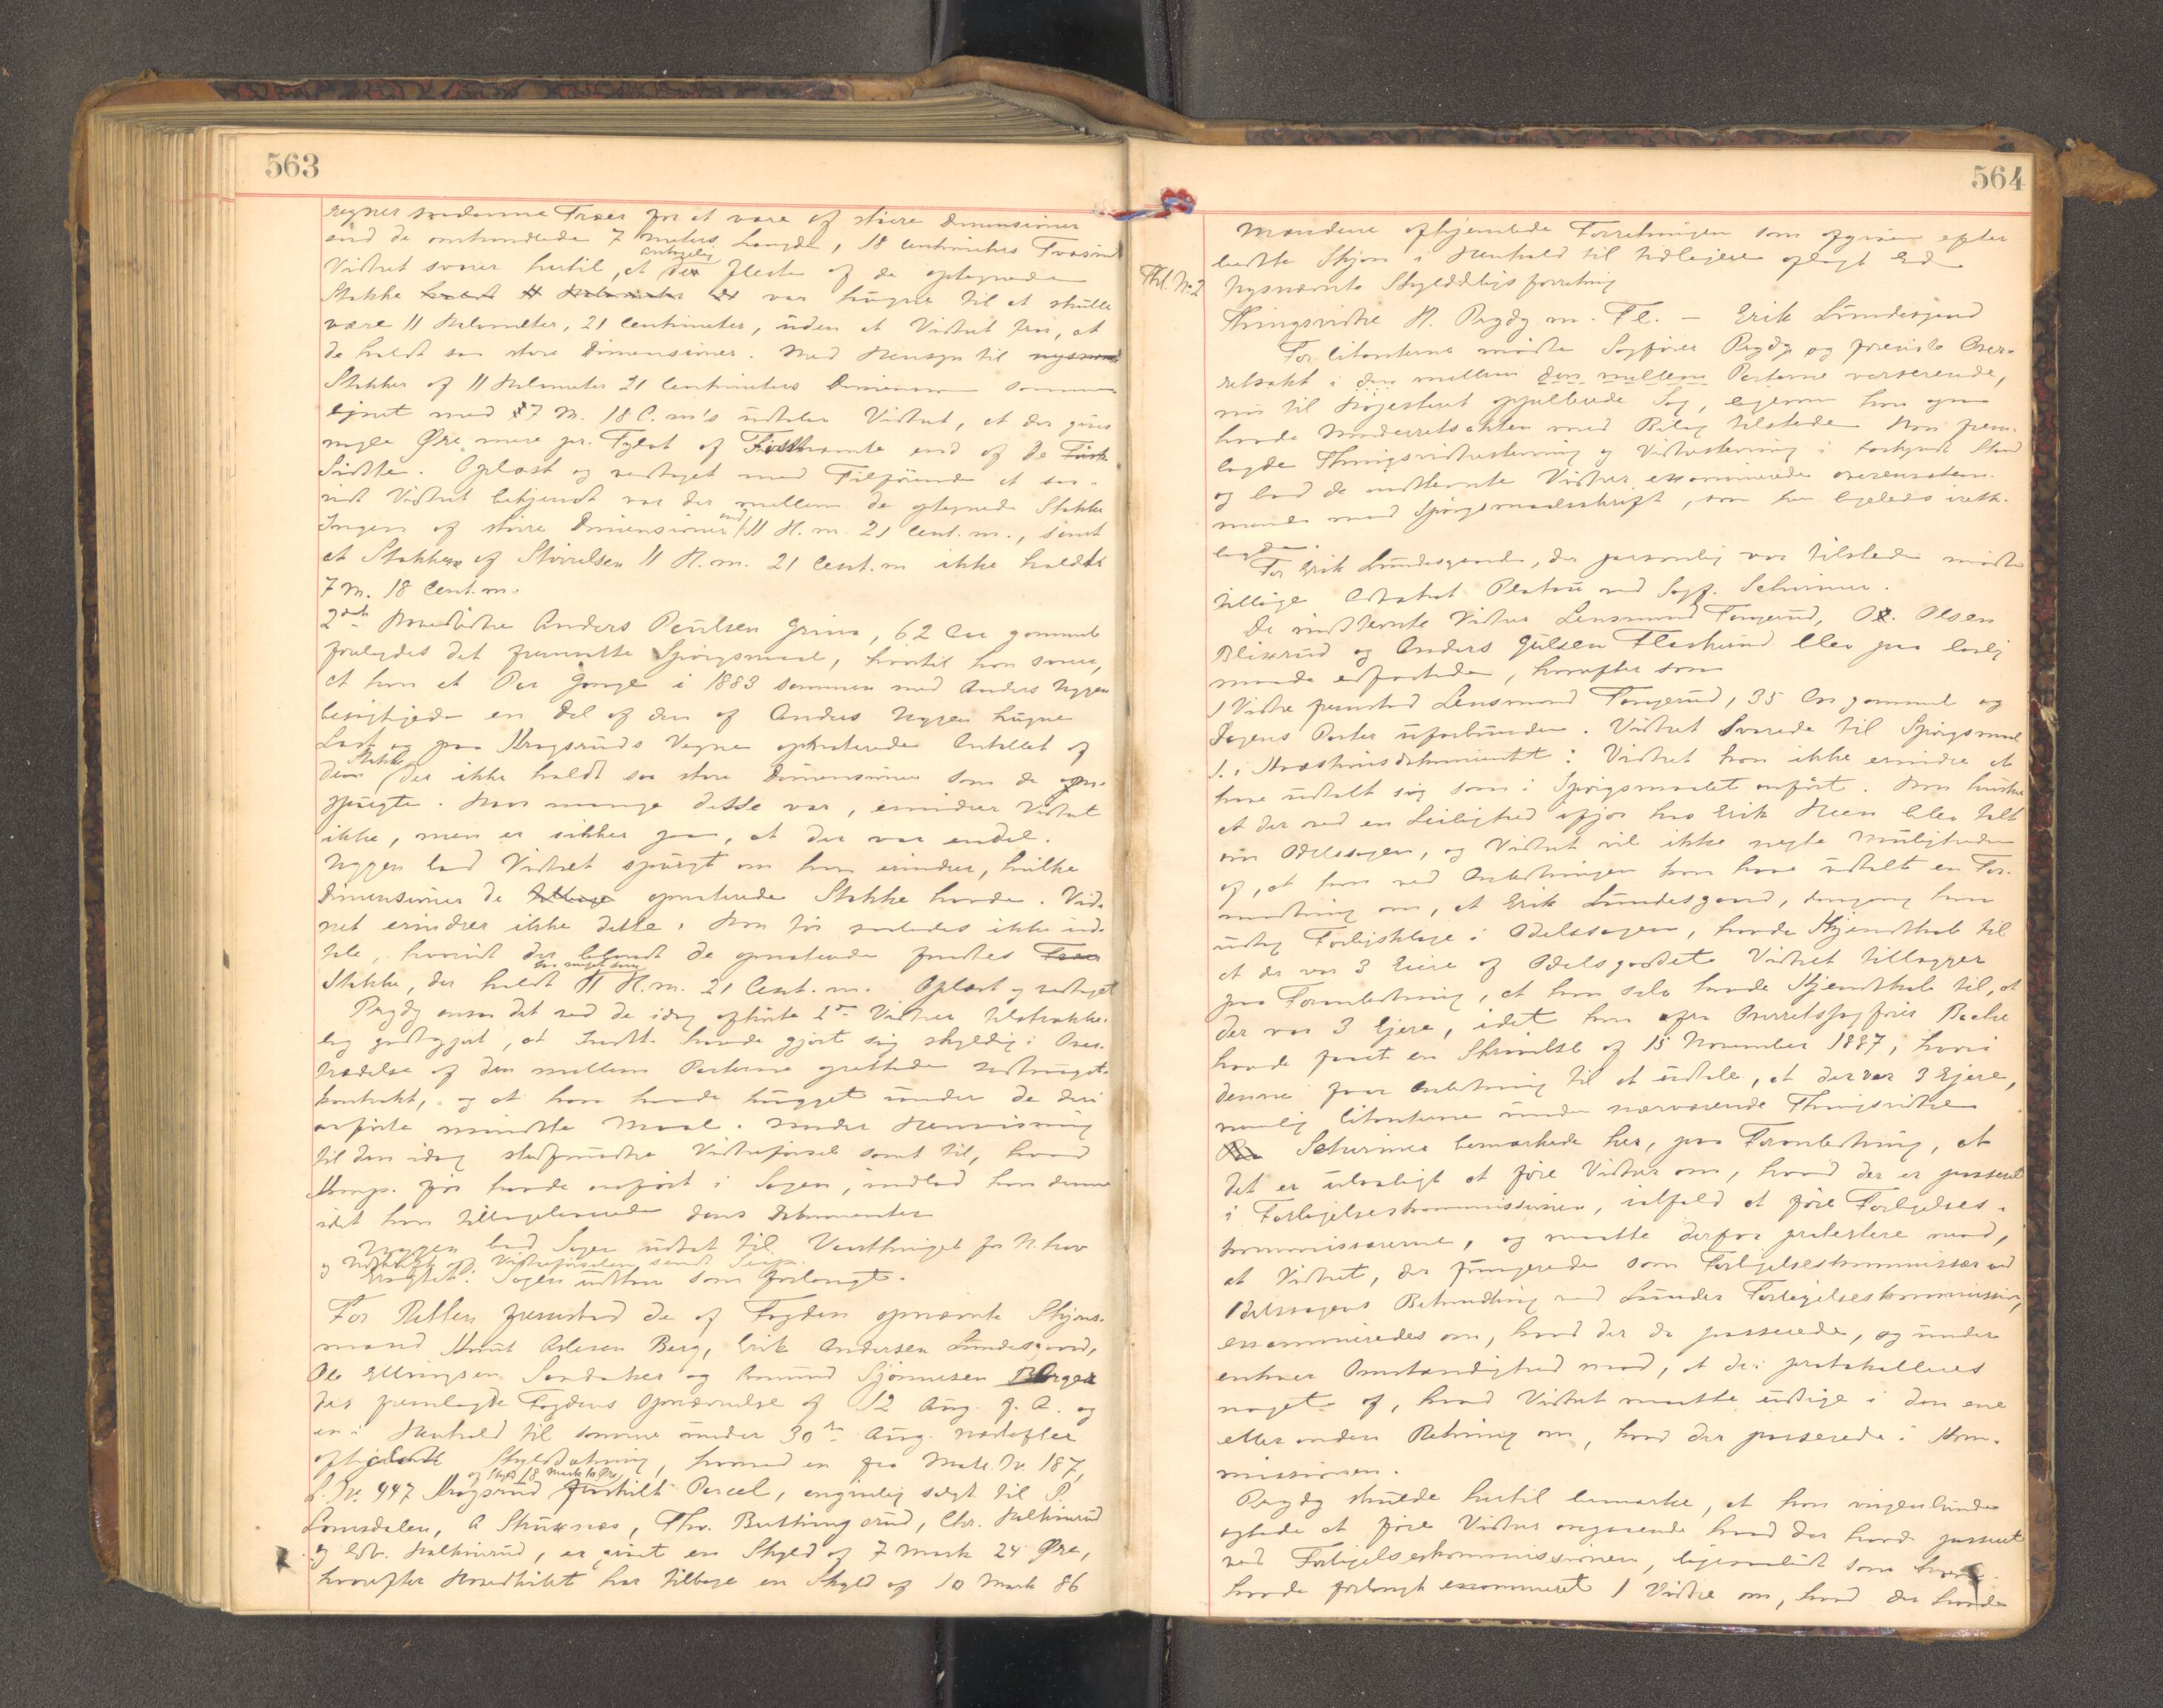 563
regner saadanne Træer for at være af større Dimensioner
end de omhandlede 7 Meters Længde, 18 Centimeters Tværsnit
Vidnet svarer hertil, at antagelig de fleste af de optegnede
Stokke var hugne til at skulle
være 11 Halvmeter, 21 Centimeter, uden at Vidnet tror, at
de holdt saa store Dimensioner. Med Hensyn til
Stokker af 11 Halvmeter 21 Centimeters Dimension sammen
lignet med 7 M. 18 C.m's udtaler Vidnet, at der gives
nogle Øre mere pr. Tylvt af Førstnævnte end af de
Sidste. Oplæst og vedtaget med Tilføiende at saa-
vidt Vidnet bekjendt var der mellem de optegnede Stokke
Ingen af større Dimensioner end 11 H.m. 21 Cent.m., samt
at Stokkene af Størrelsen 11 H.m. 21 Cent.m ikke holdt
7 M. 18 Cent.m.
2det Hovedvidne Anders Paulsen Grina, 62 Aar gammel
forelagdes det fremsatte Spørgsmaal, hvortil han svarer,
at han et Par Gange i 1883 sammen med Anders Nyggen
besigtigede en Del af den af Anders Nyggen hugne
Last og paa Kragsruds Vegne opnoterede Antallet af
dem Stokke der ikke holdt saa store Dimensioner som de
spurgte. Hvor mange disse var, erindrer Vidnet
ikke, men er sikker paa, at der var endel.
Nyggen lod Vidnet spurgt om han erindrer, hvilke
Dimensioner de opnoterede Stokke havde. Vid-
net erindrer ikke dette. Han tør saaledes ikke ud-
tale, hvorvidt der blandt de opnoterede fandtes
Stokke, der holdt 11 H.m. 21 Cent.m. Oplæst og vedtaget
Prydz ansaa det ved de idag afhørte 2de Vidner tilstrække-
lig godtgjort, at Indst. havde gjort sig skyldig i Over-
trædelse af den mellem Parterne oprettede
kontrakt, og at han havde hugget under de deri
anførte mindste Maal. Under Henvisning
til den idag stedfundne Vidneførsel samt til, hvad
Komp. før havde anført i Sagen, indlod han denne
idet han tilbageleverede dens Dokumenter
Nyggen lod Sagen udsat til Vaarthinget for
og Udskrift af Vidneførselen samt
Eragtet: Sagen udsættes som forlangt.
For Retten fremstod de af Fogden opnævnte Skjøns-
mænd Knut Olesen Berg, Erik Andersen Lundesgaard,
Ole Ellingsen Sandaker og Amund Sjønnesen
der fremlagde Fogdens Opnævnelse af 12 Aug. f. A. og
en i Henhold til samme under 30te Aug. næstefter
Skylddeling, hvorved en fra Matr. Nr. 187,
L. Nr. 447 Kragsrud af Skyld 18 Mark 10 Øre fraskilt Parcel, angivelig solgt til P.
Lomsdalen, A Skuxnæs, Thv. Buttingsrud, Chr. Halkinrud
og Edv. Halkinrud, er givet en Skyld af 7 Mark 24 Øre,
hvorefter Hovedbølet har tilbage en Skyld af 10 Mark 86
564
Mændene afhjemlede Forretningen som afgiven efter
bedste Skjøn i Henhold til tidligere aflagt Ed
Thl. No 2 Nysnævnte Skylddelingsforretning
Thingsvidne H. Prydz m. Fl. – Erik Lundesgaard
For Citanterne mødte Sagfører Prydz og fremlagde Over-
retsakt i den mellem den mellem Parterne verserende,
nu til Høiesteret appellerede Sag, ligesom han ogsaa
havde Underretsakten med Bilag tilstede. Han frem-
lagde Thingsvidnestevning og Vidnestevning i forkyndt Stand
og lod de indstevnte Vidner examinerede overensstem-
mende med Spørgsmaalsskrift, som han ligeledes irette-
lagde.
For Erik Lundesgaard, der personlig var tilstede mødte
tillige Advokat Platou ved Sagf. Schumer.
De indstevnte Vidner Lensmand Fangerud, Ol. Olsen
Blixrud og Anders Gulsen Flaskerud blev paa lovlig
maade edfæstede, hvorefter som
1 Vidne fremstod Lensmand Fangerud, 35 Aar gammel og
Sagens Parter uforbunden. Vidnet svarede til Spørgsmaal
1. i Kvæstionsdokumentet: Vidnet kan ikke erindre at
have udtalt sig som i Spørgsmaalet anført. Han husker
at der ved en Leilighed ifjor hos Erik Heen blev talt
om Odelssagen, og Vidnet vil ikke negte Muligheden
af, at han ved Anledningen kan have udtalt en For-
modning om, at Erik Lundesgaard, dengang han
udtog Forligsklage i Odelssagen, havde Kjendskab til
at der var 3 Eiere af Odelsgodset. Vidnet tillægger
paa Foranledning, at han selv havde Kjendskab til, at
der var 3 Ejere, idet han fra Overretssagfører Bache
havde faaet en Skrivelse af 15 November 1887, hvori
denne faar Anledning til at udtale, at der var 3 Ejere,
nemlig Citanterne under nærværende Thingsvidne
Schumer bemærkede her, paa Foranledning, at
det er ulovligt at føre Vidner om, hvad der er passeret
i Forligelseskommissionen, ialfald at føre Forligelses-
kommissærerne, og maatte derfor protestere mod,
at Vidnet, der fungerede som Forligelseskommissær ved
Odelssagens Behandling ved Lunder Forligelseskommission,
examineredes om, hvad der da passerede, og under
enhver Omstændighed mod, at der protokolleres
noget af, hvad Vidnet maatte udsige i den ene
eller anden Retning om, hvad der passerede i Kom-
missionen.
Prydz skulde hertil bemærke, at han ingenlunde
agtede at føre Vidner angaaende hvad der havde passeret
ved Forligelseskommissionen, ligesaalidt som han
havde forlangt examineret 1 Vidne om, hvad der havde